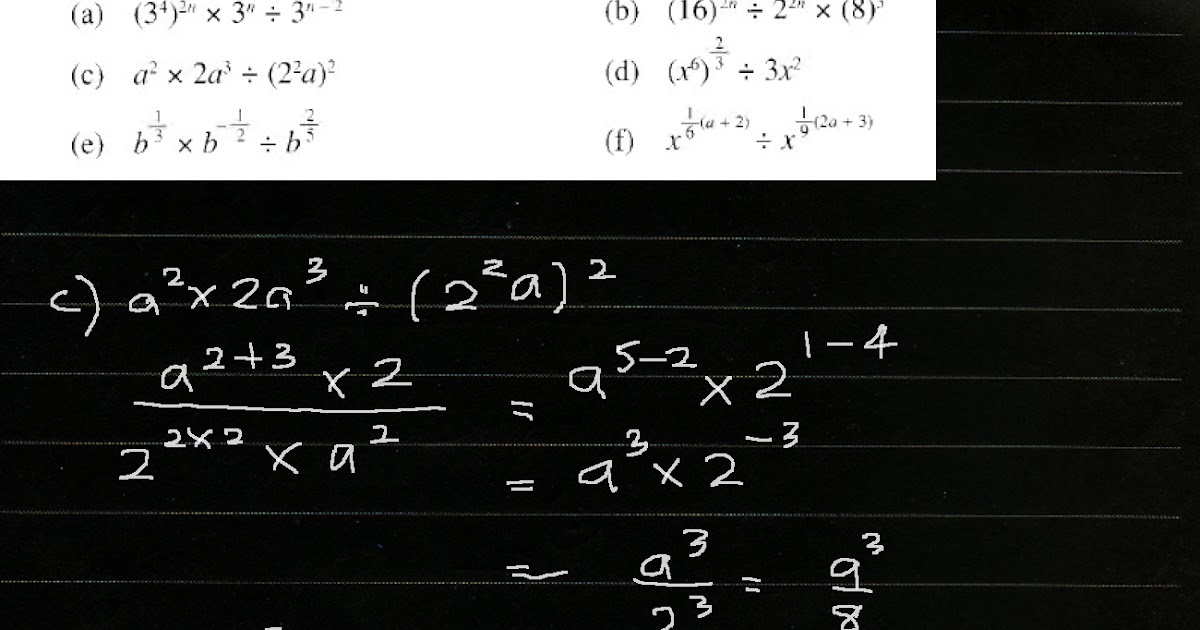 (a) (3⁴)²ⁿ × 3ⁿ ÷ 3ⁿ⁻² (b) (16) ÷ 2²ⁿ × (8)
(c) a² × 2a³ ÷ (2²a)² (d) (x⁶)^(2/3) ÷ 3x²
(e) b^(1/3) × b^(-1/2) ÷ b^(2/5) (f) x^(1/6(a + 2)) ÷ x^(1/9(2a + 3))
c) a² × 2a³ ÷ (2²a)²
a²⁺³ × 2 / 2²ˣ² × a² = a⁵⁻² × 2¹⁻⁴
= a³ × 2⁻³
= a³/2³ = a³/8